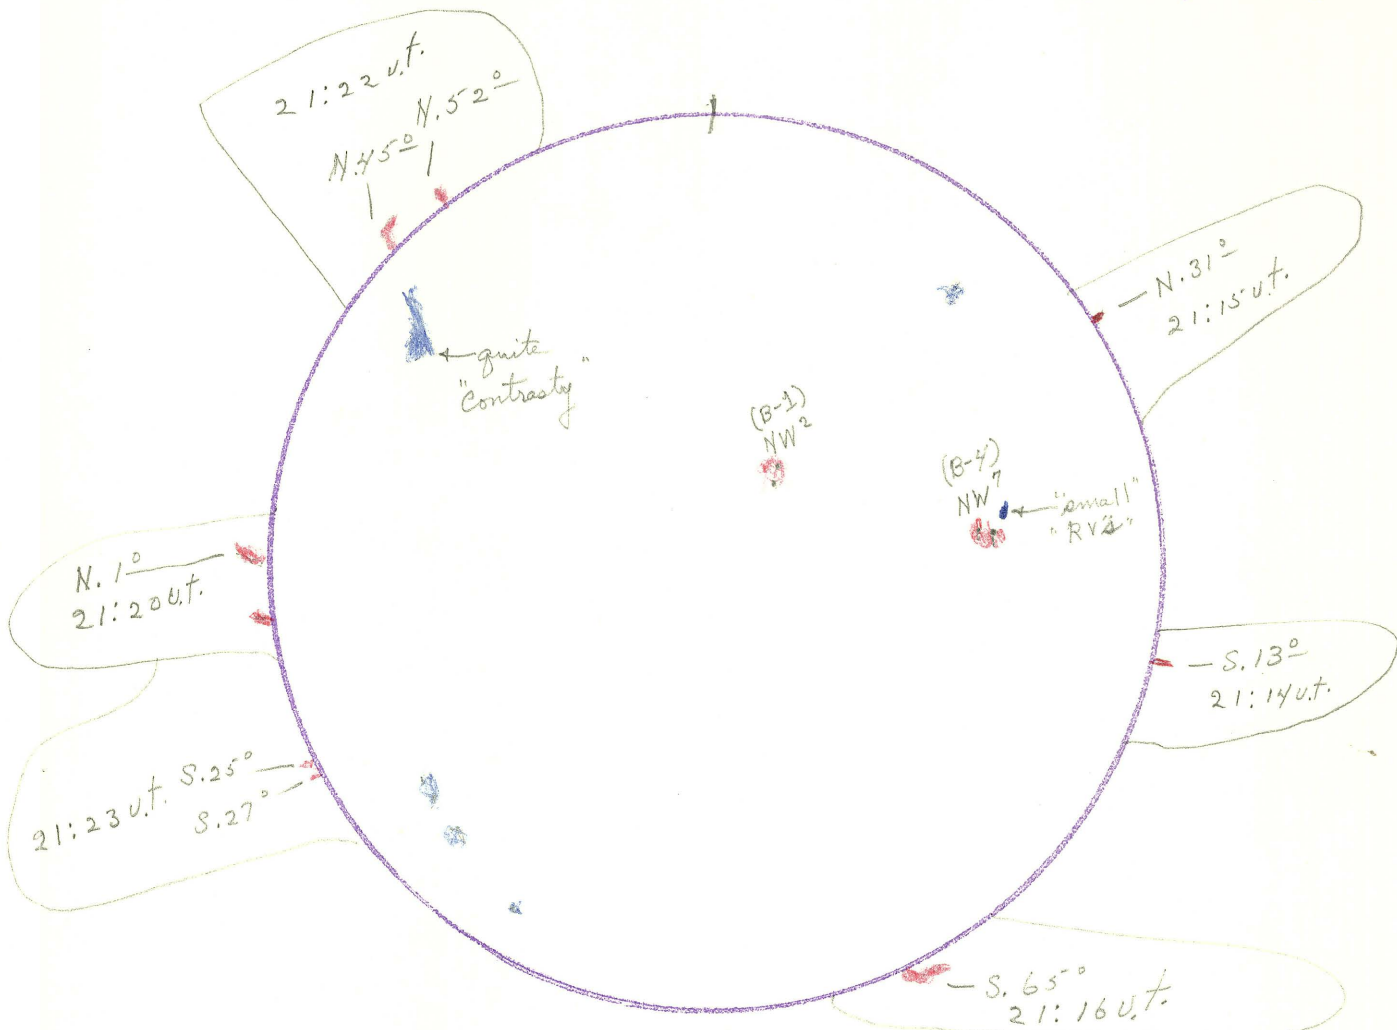 21:22 U.T.
N.45° N.52°
N.31°
21:15 U.T.
quite
"Contrasty"
(B-1)
NW2
(B-4)
NW7
"small"
"RV's"
N.1°
21:20 U.T.
S.13°
21:14 U.T.
21:23 U.T. S.25°
S.27°
S.65°
21:16 U.T.